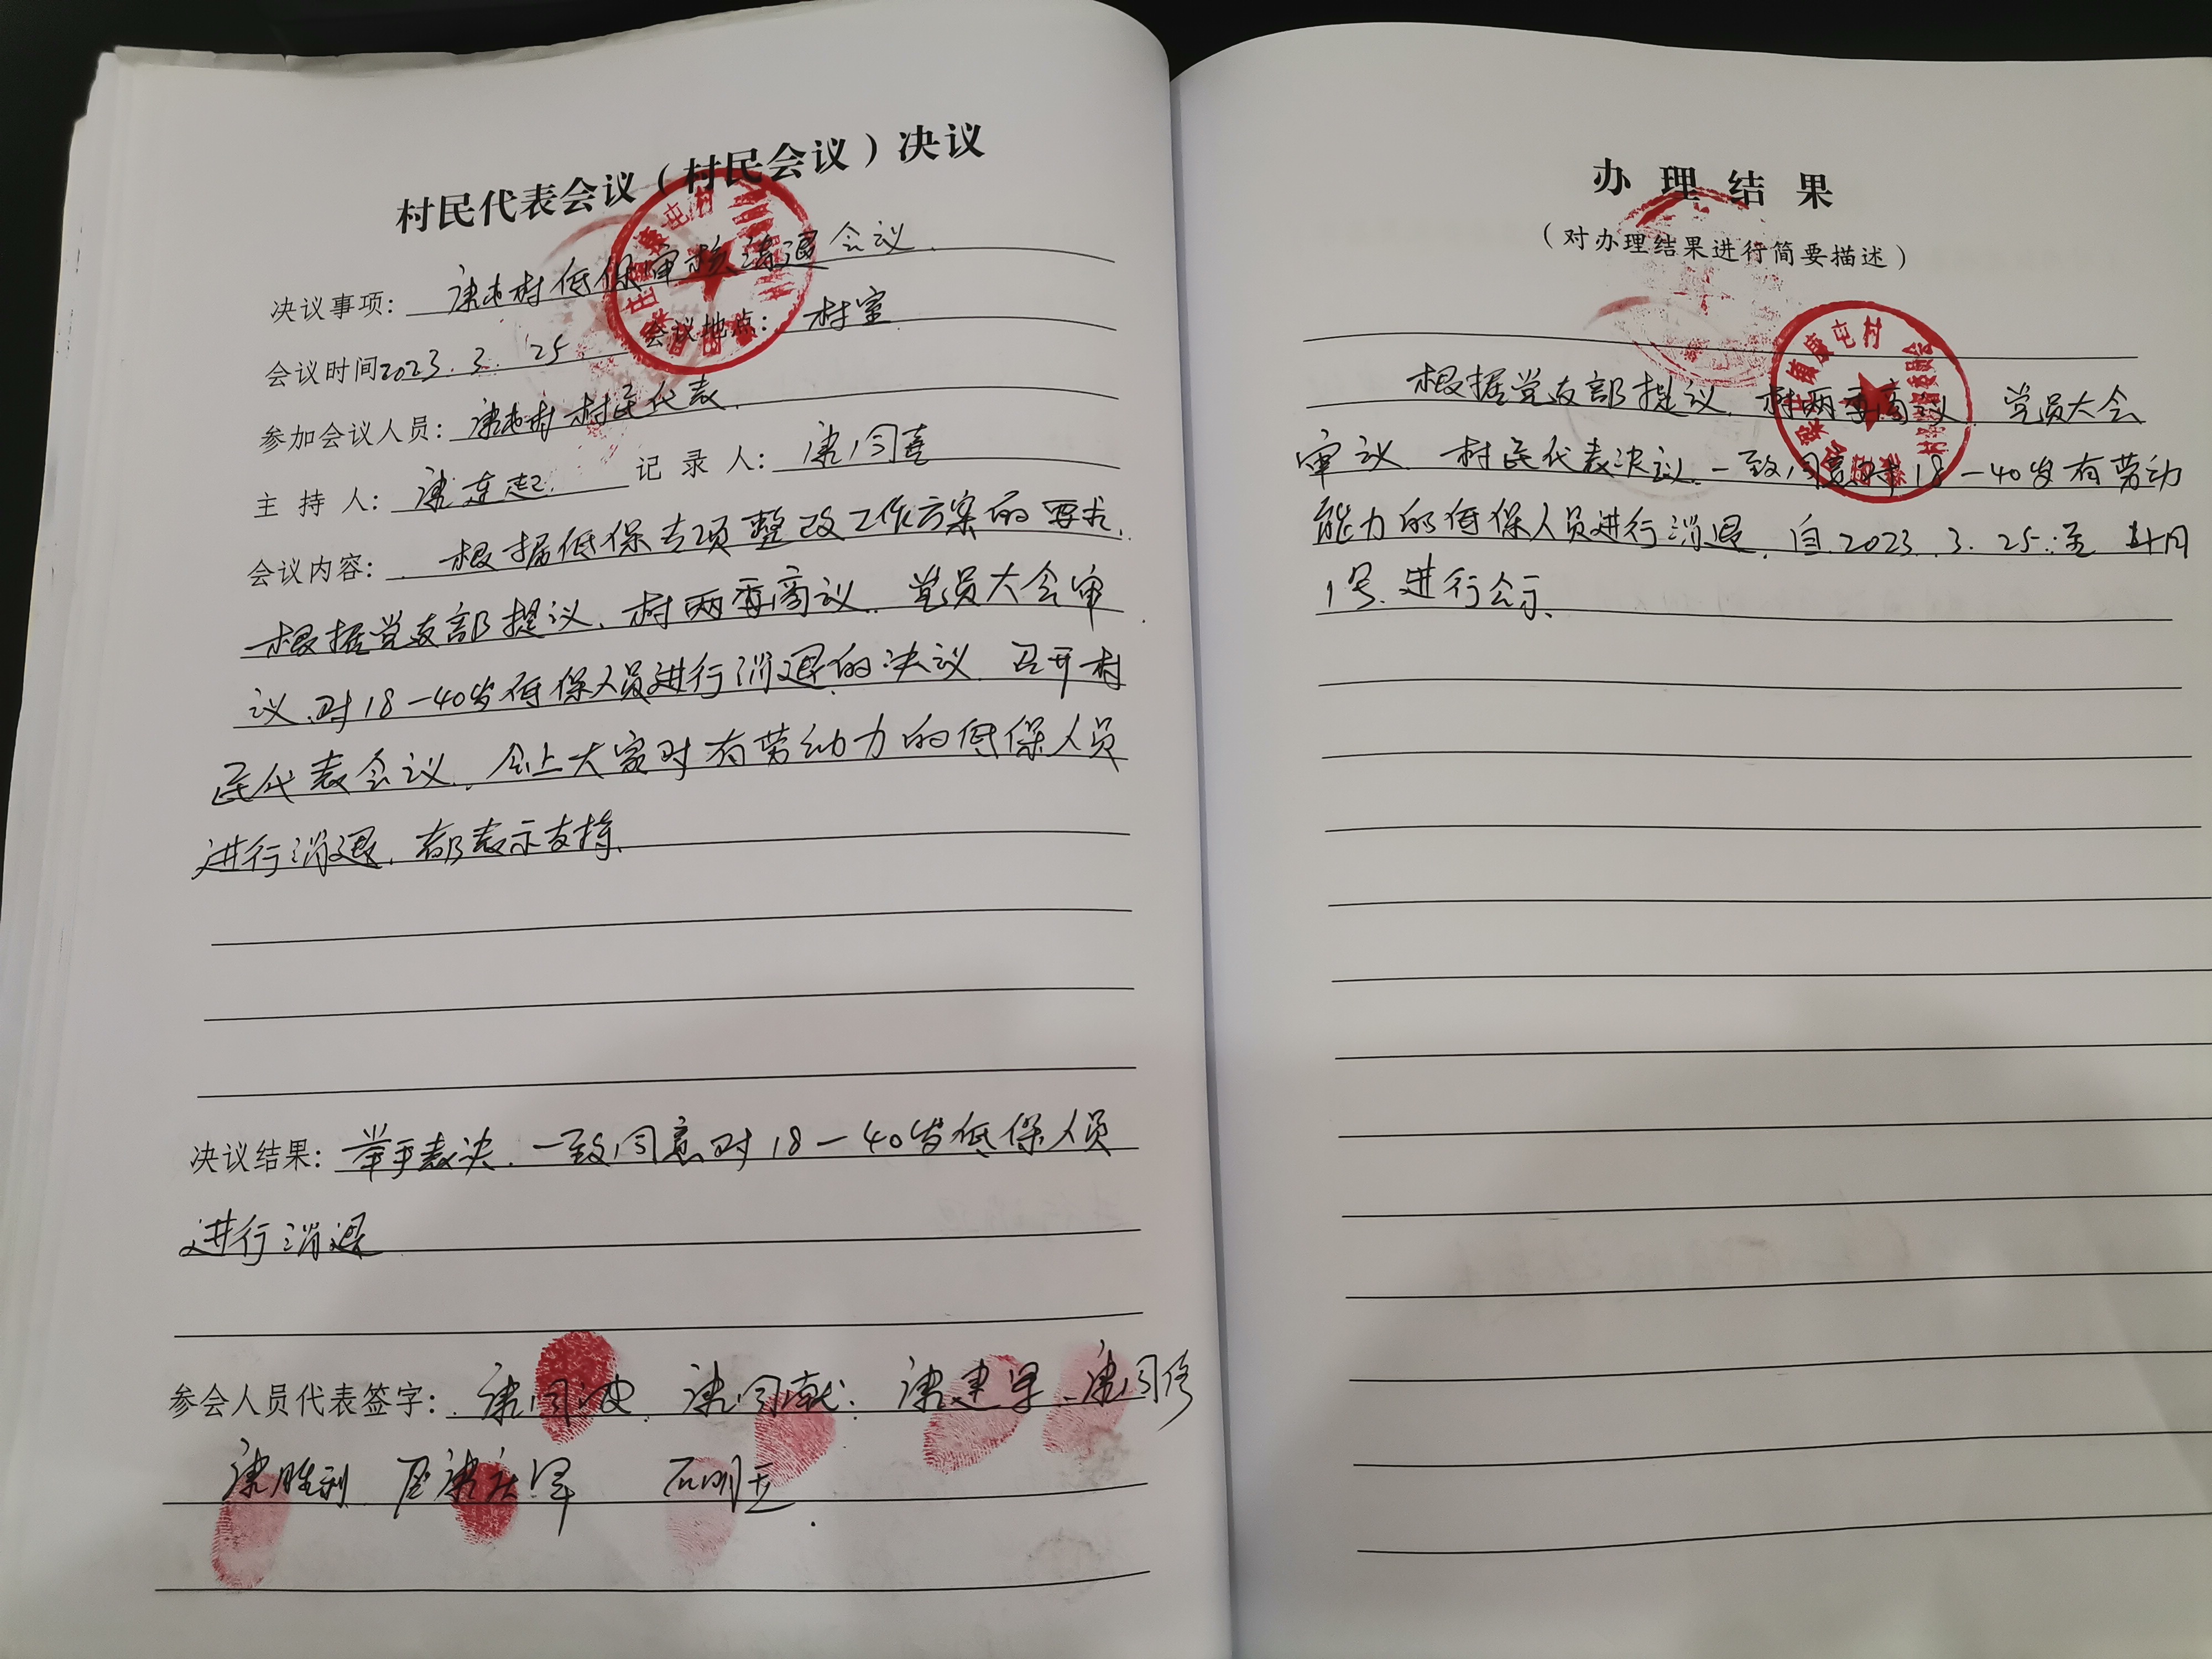 村民代表会议（村民会议）决议
决议事项： 康屯村低保审核清退会议.
会议时间2023.3.25. 会议地点： 村室
参加会议人员： 康屯村村民代表.
主持人： 康连起. 记录人： 康同喜
会议内容： 根据低保专项整改工作方案的要求.
根据党支部提议、村两委商议、党员大会审
议、对18—40岁低保人员进行消退的决议 召开村
民代表会议、会上大家对有劳动力的低保人员
进行消退、都表示支持、
决议结果： 举手表决、一致同意对18—40岁低保人员
进行消退
参会人员代表签字： 康同 康同献 康建军、康同修
康胜利 康庆军 石明
办理结果
（对办理结果进行简要描述）
镇康屯村
村务监督委员会
根据党支部提议、村两委商议 党员大会
审议、村民代表决议、一致同意对18—40岁有劳动
能力的低保人员进行消退、自2023.3.25.至4月
1号、进行公示、